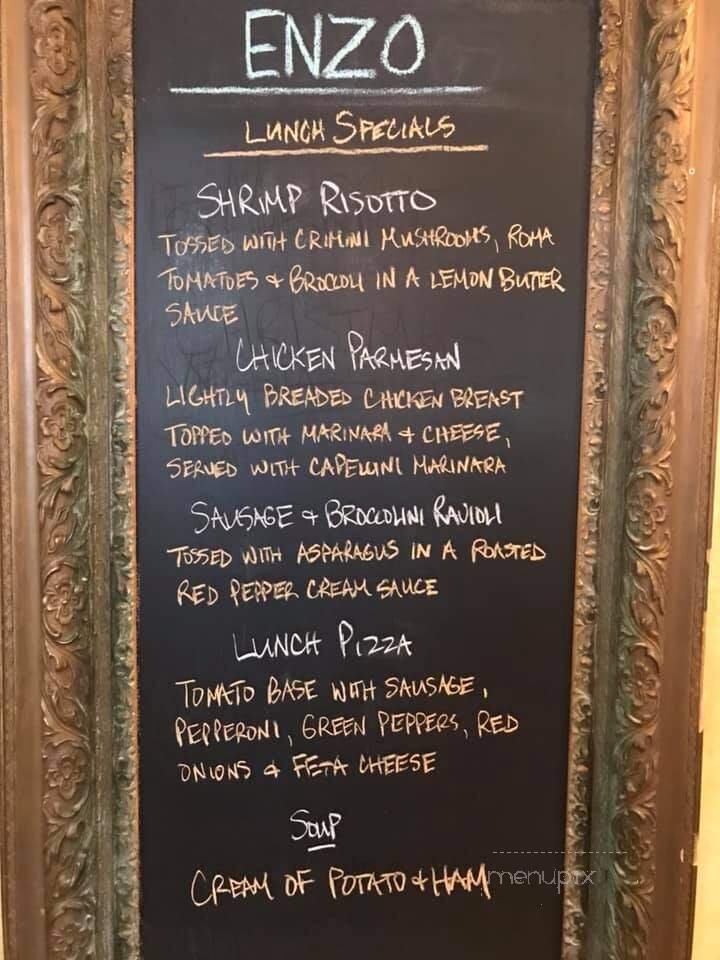 ENZO
LUNCH SPECIALS
SHRIMP RISOTTO
TOSSED WITH CRIMINI MUSHROOMS, ROMA
TOMATOES & BROCCOLI IN A LEMON BUTTER
SAUCE
CHICKEN PARMESAN
LIGHTLY BREADED CHICKEN BREAST
TOPPED WITH MARINARA & CHEESE,
SERVED WITH CAPELLINI MARINARA
SAUSAGE & BROCCOLINI RAVIOLI
TOSSED WITH ASPARAGUS IN A ROASTED
RED PEPPER CREAM SAUCE
LUNCH PIZZA
TOMATO BASE WITH SAUSAGE,
PEPPERONI, GREEN PEPPERS, RED
ONIONS & FETA CHEESE
SOUP
CREAM OF POTATO & HAM
menupix